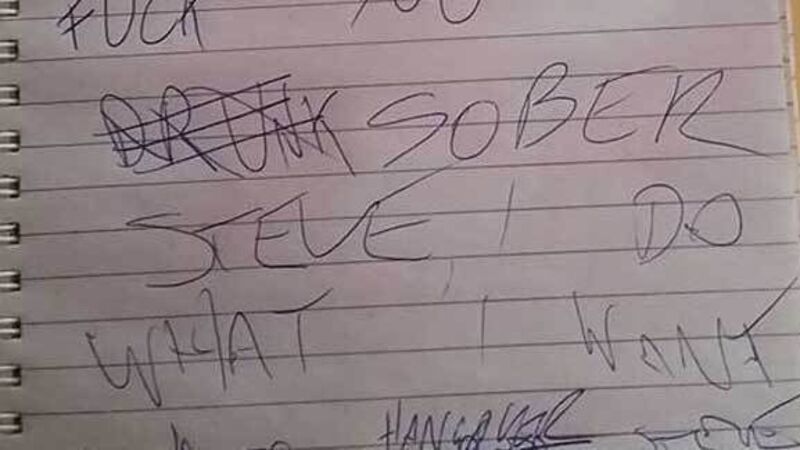 FUCK YOU
DRUNK SOBER
STEVE, I DO
WHAT I WANT
HANGOVER STEVE